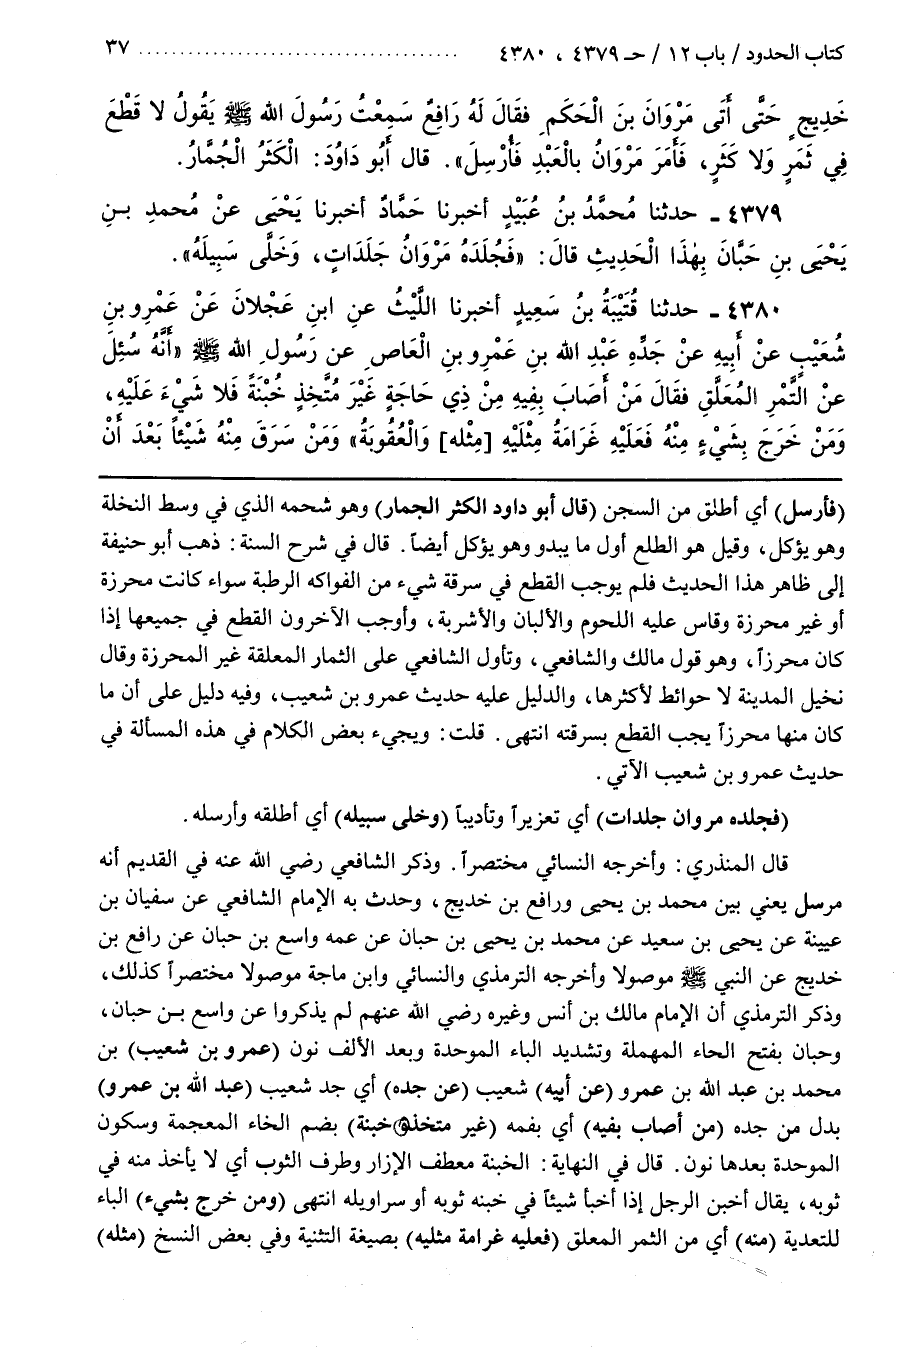 كتاب الحدود / باب ١٢ / حـ ٤٣٧٩ ، ٤٣٨٠ ..................................... ٣٧
خَدِيجٍ حَتَّى أَتَى مَرْوَانَ بنَ الْحَكَمِ فقَالَ لَهُ رَافِعٌ سَمِعْتُ رَسُولَ الله ﷺ يَقُولُ لا قَطْعَ
فِي ثَمَرٍ وَلا كَثَرٍ، فَأَمَرَ مَرْوَانُ بالْعَبْدِ فَأُرْسِلَ». قال أَبُو دَاوُدَ: الْكَثَرُ الْجُمَّارُ.
٤٣٧٩ ـ حدثنا مُحمَّدُ بنُ عُبَيْدٍ أخبرنا حَمَّادٌ أخبرنا يَحْيَى عنْ مُحمدِ بـنِ
يَحْيَى بنِ حَبَّانَ بِهٰذَا الْحَدِيثِ قالَ: «فَجَلَدَهُ مَرْوَانُ جَلَدَاتٍ، وَخَلَّى سَبِيلَهُ».
٤٣٨٠ ـ حدثنا قُتَيْبَةُ بنُ سَعِيدٍ أخبرنا اللَّيْثُ عنِ ابنِ عَجْلانَ عَنْ عَمْرِو بنِ
شُعَيْبٍ عنْ أَبِيهِ عنْ جَدِّهِ عَبْدِ الله بنِ عَمْرِو بنِ الْعَاصِ عن رَسُولِ الله ﷺ «أَنَّهُ سُئِلَ
عنْ التَّمْرِ المُعَلَّقِ فقَالَ مَنْ أَصَابَ بِفِيهِ مِنْ ذِي حَاجَةٍ غَيْرَ مُتَّخِذٍ خُبْنَةً فَلا شَيْءَ عَلَيْهِ،
وَمَنْ خَرَجَ بِشَيْءٍ مِنْهُ فَعَلَيْهِ غَرَامَةُ مِثْلَيْهِ [مِثْله] وَالْعُقُوبَةُ» وَمَنْ سَرَقَ مِنْهُ شَيْئاً بَعْدَ أَنْ
(فأرسل) أي أطلق من السجن (قال أبو داود الكثر الجمار) وهو شحمه الذي في وسط النخلة
وهو يؤكل، وقيل هو الطلع أول ما يبدو وهو يؤكل أيضاً. قال في شرح السنة: ذهب أبو حنيفة
إلى ظاهر هذا الحديث فلم يوجب القطع في سرقة شيء من الفواكه الرطبة سواء كانت محرزة
أو غير محرزة وقاس عليه اللحوم والألبان والأشربة، وأوجب الآخرون القطع في جميعها إذا
كان محرزاً، وهو قول مالك والشافعي، وتأول الشافعي على الثمار المعلقة غير المحرزة وقال
نخيل المدينة لا حوائط لأكثرها، والدليل عليه حديث عمرو بن شعيب، وفيه دليل على أن ما
كان منها محرزاً يجب القطع بسرقته انتهى. قلت: ويجيء بعض الكلام في هذه المسألة في
حديث عمرو بن شعيب الآتي.
(فجلده مروان جلدات) أي تعزيراً وتأديباً (وخلى سبيله) أي أطلقه وأرسله.
قال المنذري: وأخرجه النسائي مختصراً. وذكر الشافعي رضي الله عنه في القديم أنه
مرسل يعني بين محمد بن يحيى ورافع بن خديج، وحدث به الإمام الشافعي عن سفيان بن
عيينة عن يحيى بن سعيد عن محمد بن يحيى بن حبان عن عمه واسع بن حبان عن رافع بن
خديج عن النبي ﷺ موصولا وأخرجه الترمذي والنسائي وابن ماجة موصولا مختصراً كذلك،
وذكر الترمذي أن الإمام مالك بن أنس وغيره رضي الله عنهم لم يذكروا عن واسع بـن حبان،
وحبان بفتح الحاء المهملة وتشديد الباء الموحدة وبعد الألف نون (عمرو بن شعيب) بن
محمد بن عبد الله بن عمرو (عن أبيه) شعيب (عن جده) أي جد شعيب (عبد الله بن عمرو)
بدل من جده (من أصاب بفيه) أي بفمه (غير متخذ خبنة) بضم الخاء المعجمة وسكون
الموحدة بعدها نون. قال في النهاية: الخبنة معطف الإزار وطرف الثوب أي لا يأخذ منه في
ثوبه، يقال أخبن الرجل إذا أخبأ شيئاً في خبنه ثوبه أو سراويله انتهى (ومن خرج بشيء) الباء
للتعدية (منه) أي من الثمر المعلق (فعليه غرامة مثليه) بصيغة التثنية وفي بعض النسخ (مثله)